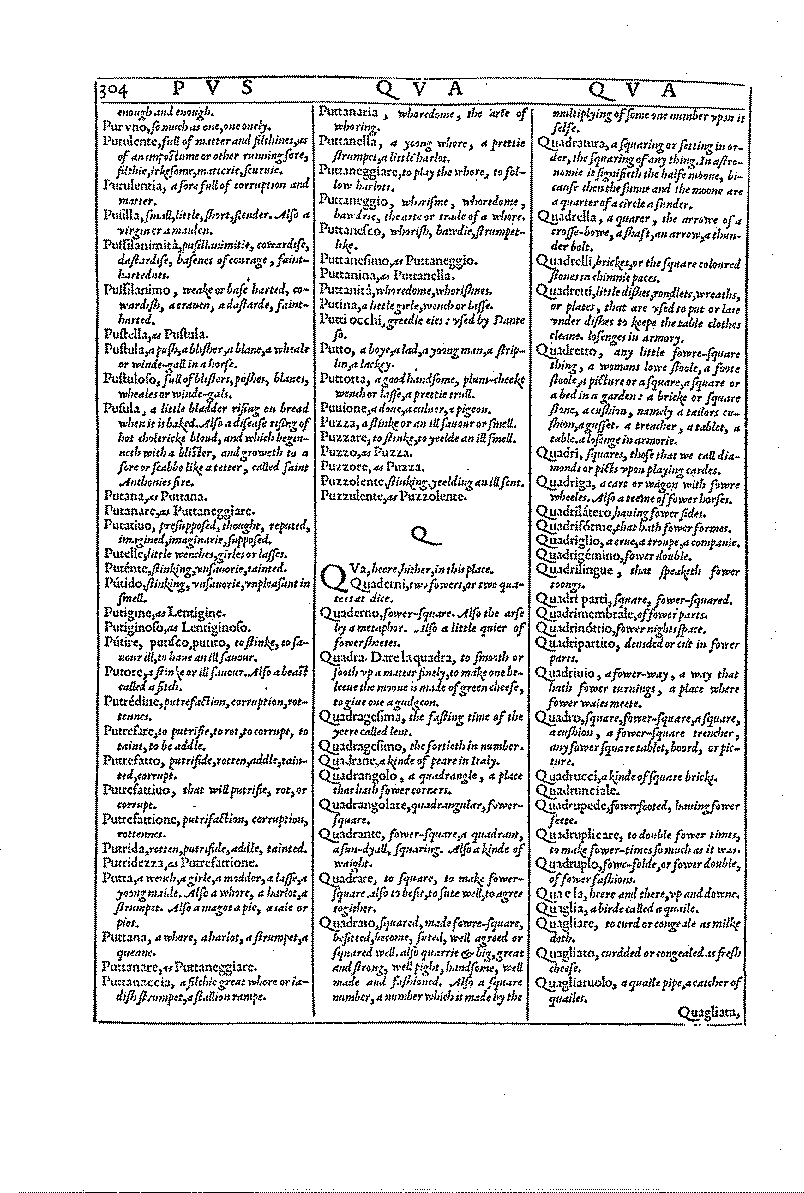 304 PVS QVA QVA
enough and enough.
Pur vno, so much as one, one onely.
Purulente, full of matter and filthines, as
of an impostume or other running sore,
filthie, irkesome, matterie, scuruie.
Purulentia, a sore full of corruption and
matter.
Pusilla, small, little, short, slender. Also a
virgin or a maiden.
Pusillanimità, pusillanimitie, cowardise,
dastardise, basenes of courage, faint-
hartednes.
Pusillanimo, weake or base harted, co-
wardish, a crauen, a dastarde, faint-
harted.
Pustella, as Pustula.
Pustula, a push, a blister, a blane, a wheale
or winde-gall in a horse.
Pustuloso, full of blisters, poshes, blanes,
wheales or winde-gals.
Pusula, a little bladder rising on bread
when it is baked. Also a disease rising of
hot cholericke bloud, and which begin-
neth with a blister, and groweth to a
sore or scabbe like a tetter, called saint
Anthonies fire.
Putana, as Puttana.
Putanare, as Puttaneggiare.
Putatiuo, presupposed, thought, reputed,
imagined, imaginarie, supposed.
Putelle, little wenches, girles or lasses.
Puténte, stinking, vnsauorie, tainted.
Pútido, stinking, vnsauorie, vnpleasant in
smell.
Putigine, as Lentigine.
Putiginoso, as Lentiginoso.
Pútire, putisco, putito, to stinke, to sa-
uour ill, to haue an ill sauour.
Putore, a stinke or ill sauour. Also a beast
called a fitch.
Putrédine, putrefaction, corruption, rot-
tennes.
Putrefare, to putrifie, to rot, to corrupt, to
taint, to be addle.
Putrefatto, putrifide, rotten, addle, tain-
ted, corrupt.
Putrefattiuo, that will putrifie, rot, or
corrupt.
Putrefattione, putrifaction, corruption,
rottennes.
Putrida, rotten, putrifide, addle, tainted.
Putridezza, as Putrefattione.
Putta, a wench, a girle, a modder, a lasse, a
yoong maide. Also a whore, a harlot, a
strumpet. Also a magot a pie, a iaie or
piot.
Puttana, a whore, a harlot, a strumpet, a
queane.
Puttanare, as Puttaneggiare.
Puttanaccia, a filthie great whore or ia-
dish strumpet, a stallion rampe.
Puttanaria, whoredome, the arte of
whoring.
Puttanella, a yoong whore, a prettie
strumpet, a little harlot.
Puttaneggiare, to play the whore, to fol-
low harlots.
Puttaneggio, whorisme, whoredome,
bawdrie, the arte or trade of a whore.
Puttanesco, whorish, bawdie, strumpet-
like.
Puttanesimo, as Puttaneggio.
Puttanina, as Puttanella.
Puttanità, whoredome, whorishnes.
Puttina, a little girle, wench or lasse.
Putti occhi, greedie eies: vsed by Dante
so.
Putto, a boye, a lad, a yoong man, a strip-
lin, a lackey.
Puttotta, a good handsome, plum-cheekt
wench or lasse, a prettie trull.
Puuione, a doue, a culuer, a pigeon.
Puzza, a stinke or an ill sauour or smell.
Puzzare, to stinke, to yeelde an ill smell.
Puzzo, as Puzza.
Puzzore, as Puzza.
Puzzolente, stinking, yeelding an ill sent.
Puzzulente, as Puzzolente.
Q
QVa, heere, hither, in this place.
Quaderni, two fowers, or two qua-
ters at dice.
Quaderno, fower-square. Also the arse
by a metaphor. Also a little quier of
fower sheetes.
Quadra. Dare la quadra, to smooth or
sooth vp a matter finely, to make one be-
leeue the moone is made of green cheese,
to giue one a gudgeon.
Quadragesima, the fasting time of the
yeere called lent.
Quadragesimo, the fortieth in number.
Quadrane, a kinde of peare in Italy.
Quadrangolo, a quadrangle, a place
that hath fower corners.
Quadrangolare, quadrangular, fower-
square.
Quadrante, fower-square, a quadrant,
a sun-dyall, squaring. Also a kinde of
waight.
Quadrare, to square, to make fower-
square. Also to befit, to sute well, to agree
togither.
Quadrato, squared, made fowre-square,
befitted, become, suted, well agreed or
squared well. also quarrie & big, great
and strong, well pight, handsome, well
made and fashioned. Also a square
number, a number which is made by the
multiplying of some one number vpon it
selfe.
Quadratura, a squaring or setting in or-
der, the squaring of any thing. In astro-
nomie it signifieth the halfe moone, bi-
cause then the sunne and the moone are
a quarter of a circle asunder.
Quadrella, a quarer, the arrowe of a
crosse-bowe, a shaft, an arrow, a thun-
der bolt.
Quadrelli, bricks, or the square coloured
stones in chimnie paces.
Quadretti, little dishes, rondlets, wreaths,
or plates, that are vsed to put or laie
vnder dishes to keepe the table clothes
cleane. losenges in armory.
Quadretto, any little fowre-square
thing, a womans lowe stoole, a foote
stoole, a picture or a square, a square or
a bed in a garden: a bricke or square
stone, a cushion, namely a tailors cu-
shion, a gusset. a trencher, a tablet, a
table. a losinge in armorie.
Quadri, squares, those that we call dia-
monds or picts vpon playing cardes.
Quadriga, a carte or wagon with fowre
wheeles. Also a teeme of fower horses.
Quadrilátero, hauing fower sides.
Quadrifórme, that hath fower formes.
Quadriglio, a crue, a troupe, a companie.
Quadrigémino, fower double.
Quadrilingue, that speaketh fower
toongs.
Quadri parti, square, fower-squared.
Quadrimembrale, of fower parts.
Quadrinóttio, fower nights space.
Quadripartito, deuided or cut in fower
parts.
Quadriuio, a fower-way, a way that
hath fower turnings, a place where
fower waies meete.
Quadro, square, fower-square, a square,
a cushion, a fower-square trencher,
any fower square tablet, boord, or pic-
ture.
Quadrucci, a kinde of square bricke.
Quadrunciale.
Quadrupede, fowerfooted, hauing fower
feete.
Quadruplicare, to double fower times,
to make fower-times so much as it was.
Quadruplo, fowe-folde, or fower double,
of fower fashions.
Qua e la, heere and there, vp and downe.
Quaglia, a birde called a quaile.
Quagliare, to curd or congeale as milke
doth.
Quagliato, curdded or congealed as fresh
cheese.
Quagliaruolo, a quaile pipe, a catcher of
quailes.
Quagliata,